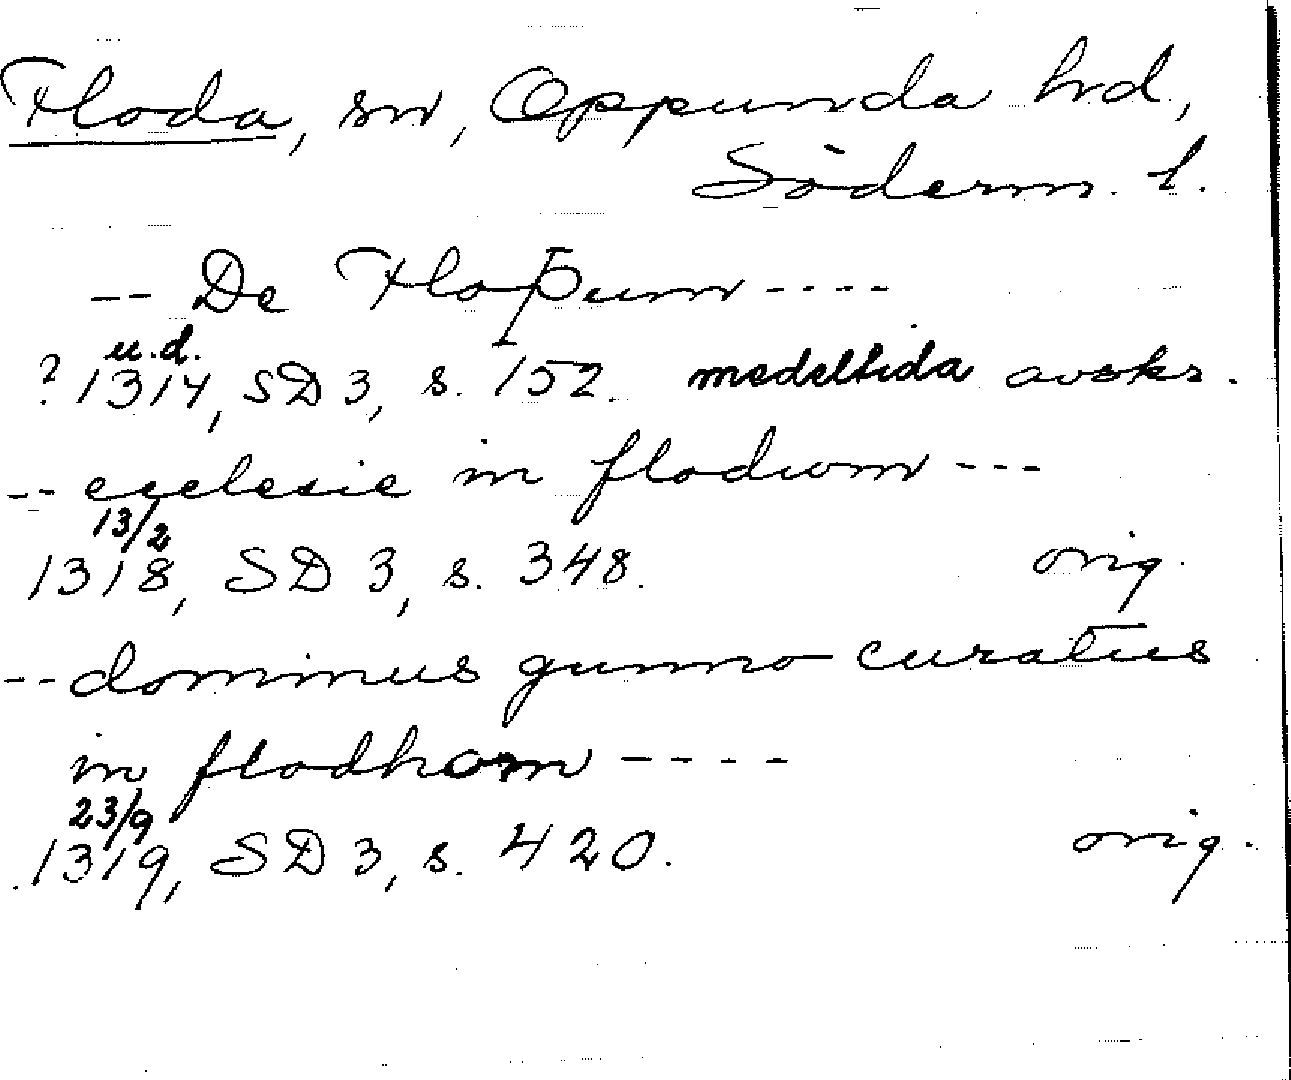 Floda, sn, Oppunda hrd,
Söderm. l.
-- De Floþum ----
u.d.
? 1314, SD 3, s. 152. medeltida avskr.
-- ecclesie in flodwm ---
13/2
1318, SD 3, s. 348. orig.
-- dominus gunno curatus
in flodhom ----
23/9
1319, SD 3, s. 420. orig.